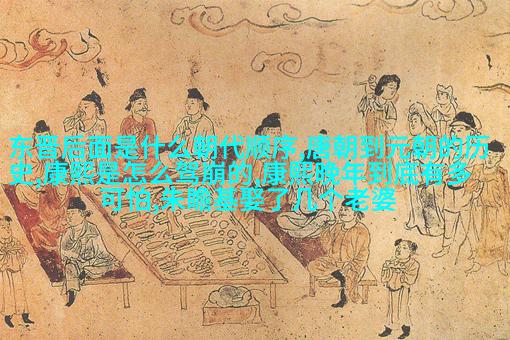 东晋后面是什么朝代顺序,唐朝到元朝的历
史,康熙是怎么驾崩的,康熙晚年到底有多
可怕,朱瞻基娶了几个老婆